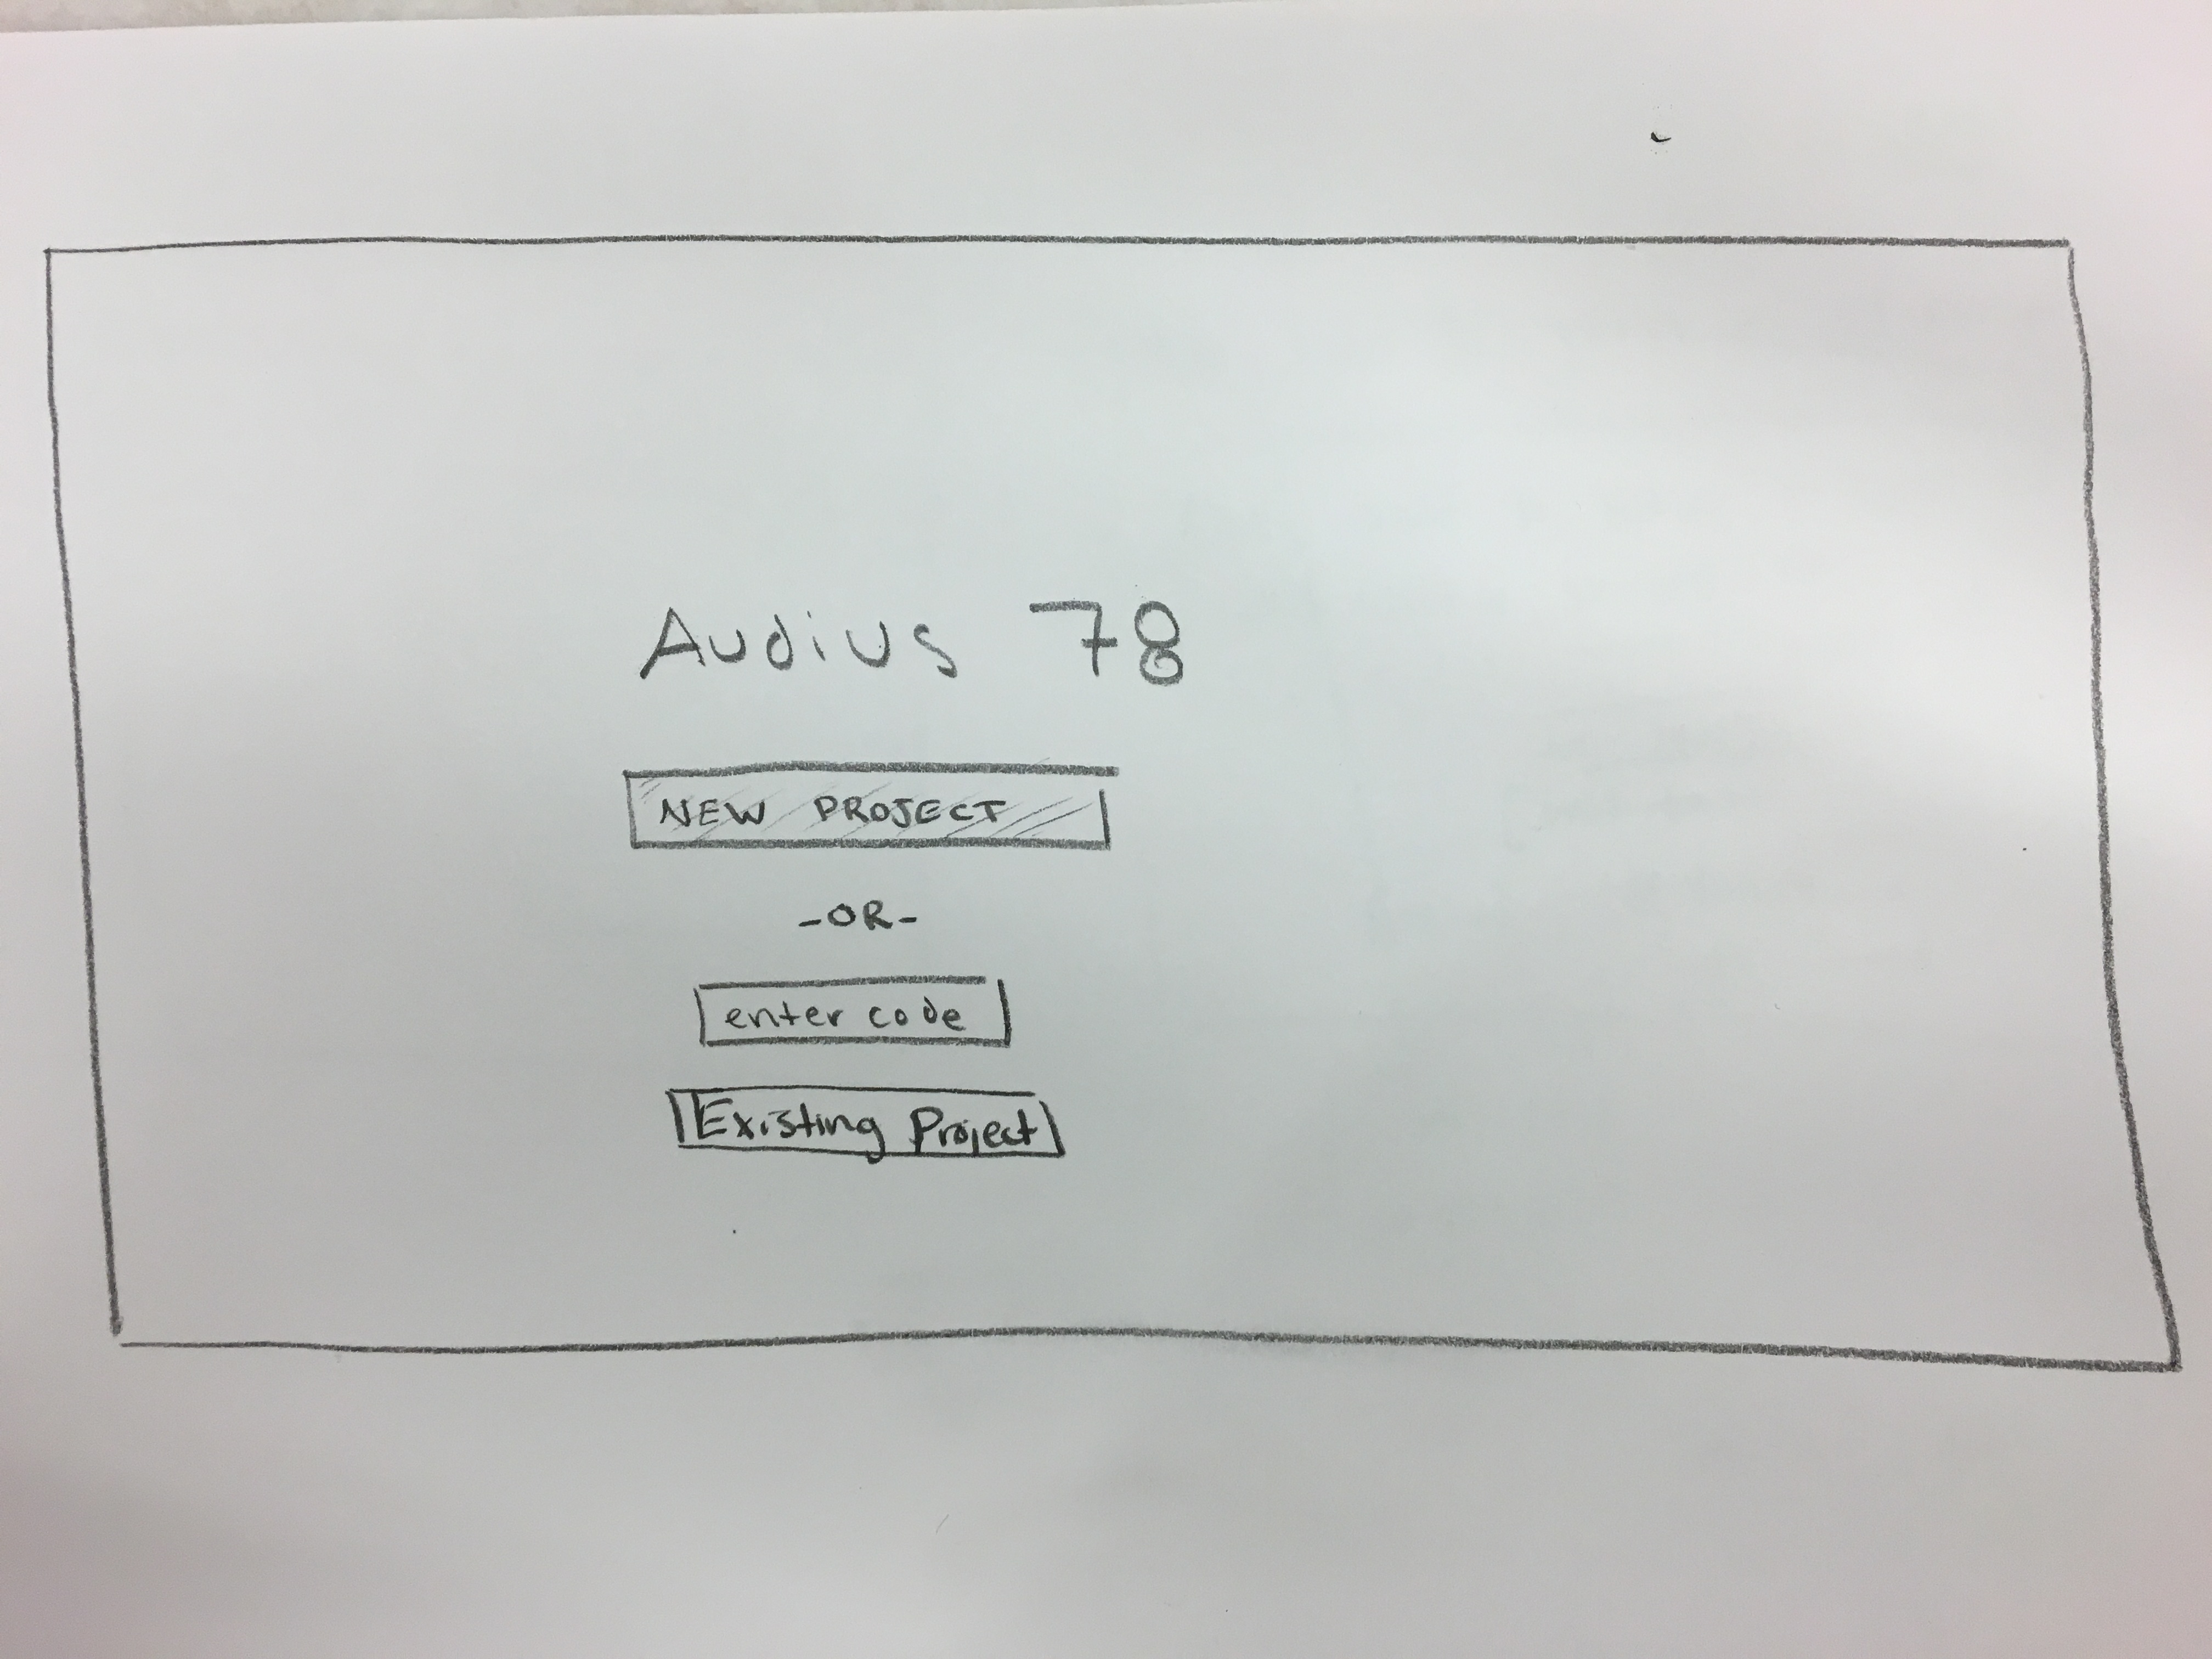 Audius 78
NEW PROJECT
-OR-
enter code
Existing Project